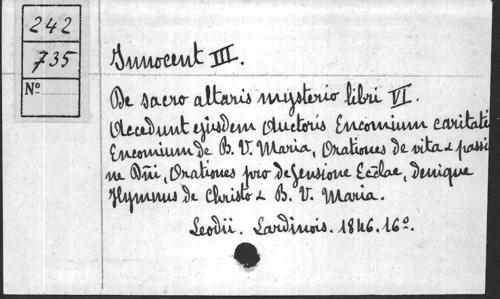 242
735
Nº
Innocent III.
De sacro altaris mysterio libri VI.
Accedunt ejusdem Auctoris Encomium caritati
Encomium de B. V. Maria, Orationes de vita & passi
ne Dñi, Orationes pro defensione Ecclae, denique
Hymnus de Christo & B. V. Maria.
Leodii. Lardinois. 1846. 16º.